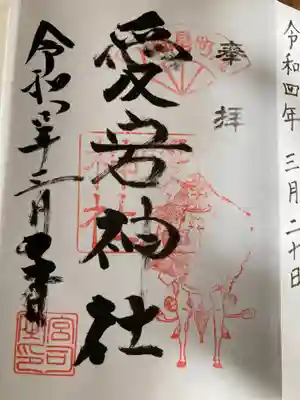 令和四年 三月 二十日
奉拝
愛宕神社
令和四年三月二十日
宮司之印